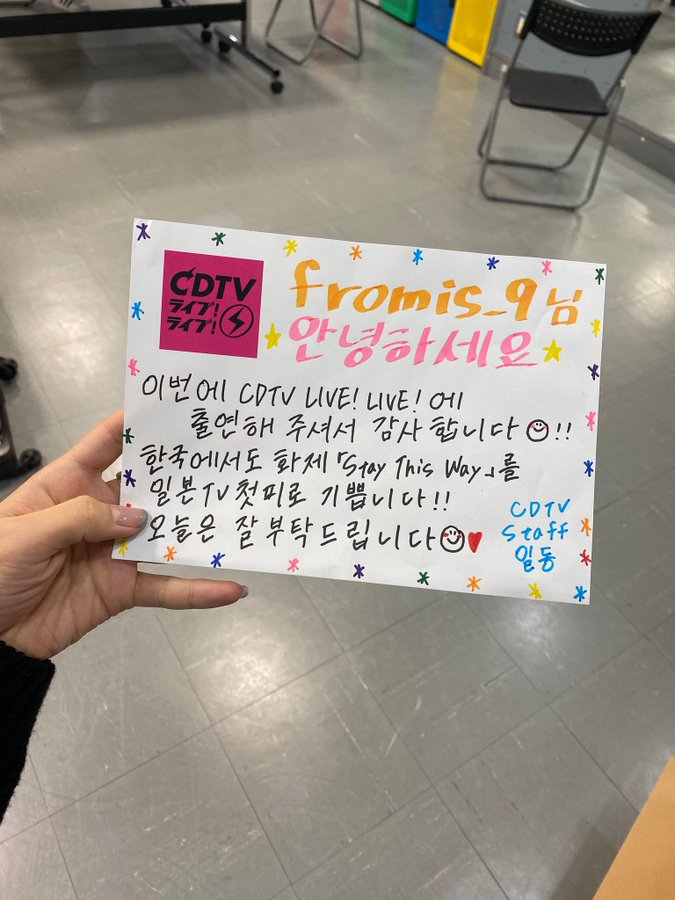 CDTV
ライブ!
ライブ!
fromis_9님
안녕하세요
이번에 CDTV LIVE! LIVE! 에
출연해 주셔서 감사합니다!!
한국에서도 화제「Stay This Way」를
일본TV 첫피로 기쁩니다!!
오늘은 잘 부탁드립니다
CDTV
Staff
일동